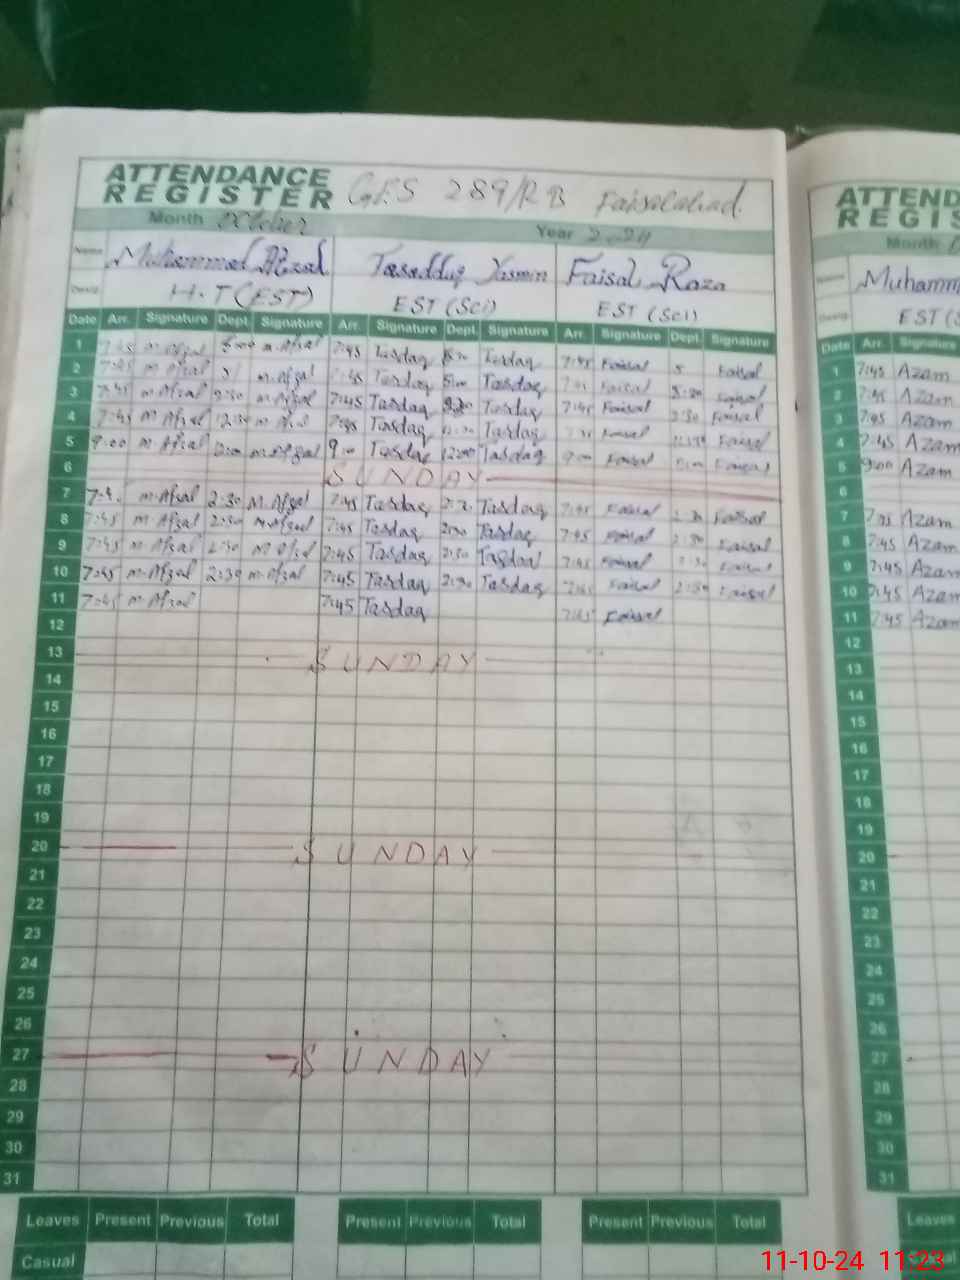 ATTENDANCE REGISTER G.E.S 289/RB Faisalabad.
Month October Year 2024
Name Muhammad Afzal Tasadduq Yasmin Faisal Raza
Desig. H.T (EST) EST (Sci) EST (Sci)
Date Arr. Signature Dept. Signature Arr. Signature Dept. Signature Arr. Signature Dept. Signature
1 7:45 m.Afzal m.Afzal 7:45 Tasdaq Tasdaq 7:45 Faisal 5 Faisal
2 7:45 m.Afzal m.Afzal 7:45 Tasdaq 5:00 Tasdaq Faisal Faisal
3 7:45 m.Afzal 2:30 m.Afzal 7:45 Tasdaq Tasdaq 7:45 Faisal 2:30 Faisal
4 7:45 m.Afzal 12:30 m.Afzal 7:45 Tasdaq Tasdaq Faisal Faisal
5 9:00 m.Afzal 12:00 m.Afzal 9:00 Tasdaq 12:00 Tasdaq 9:00 Faisal Faisal
6 SUNDAY
7 m.Afzal 2:30 M.Afzal 7:45 Tasdaq 2:30 Tasdaq 7:45 Faisal Faisal
8 7:45 m.Afzal 2:30 m.Afzal 7:45 Tasdaq 2:30 Tasdaq 7:45 Faisal 2:30 Faisal
9 7:45 m.Afzal 2:30 m.Afzal 7:45 Tasdaq 2:30 Tasdaq 7:45 Faisal Faisal
10 7:45 m.Afzal 2:30 m.Afzal 7:45 Tasdaq 2:30 Tasdaq 7:45 Faisal 2:30 Faisal
11 7:45 m.Afzal 7:45 Tasdaq 7:45 Faisal
12
13 SUNDAY
14
15
16
17
18
19
20 SUNDAY
21
22
23
24
25
26
27 SUNDAY
28
29
30
31
Leaves Present Previous Total Present Previous Total Present Previous Total
Casual
ATTEND
REGIS
Month
Name Muhamm
Desig. EST (S
Date Arr. Signature
1 7:45 Azam
2 7:45 Azam
3 7:45 Azam
4 7:45 Azam
5 9:00 Azam
6
7 7:45 Azam
8 7:45 Azam
9 7:45 Azam
10 7:45 Azam
11 7:45 Azam
12
13
14
15
16
17
18
19
20
21
22
23
24
25
26
27
28
29
30
31
Leaves
11-10-24 11:23